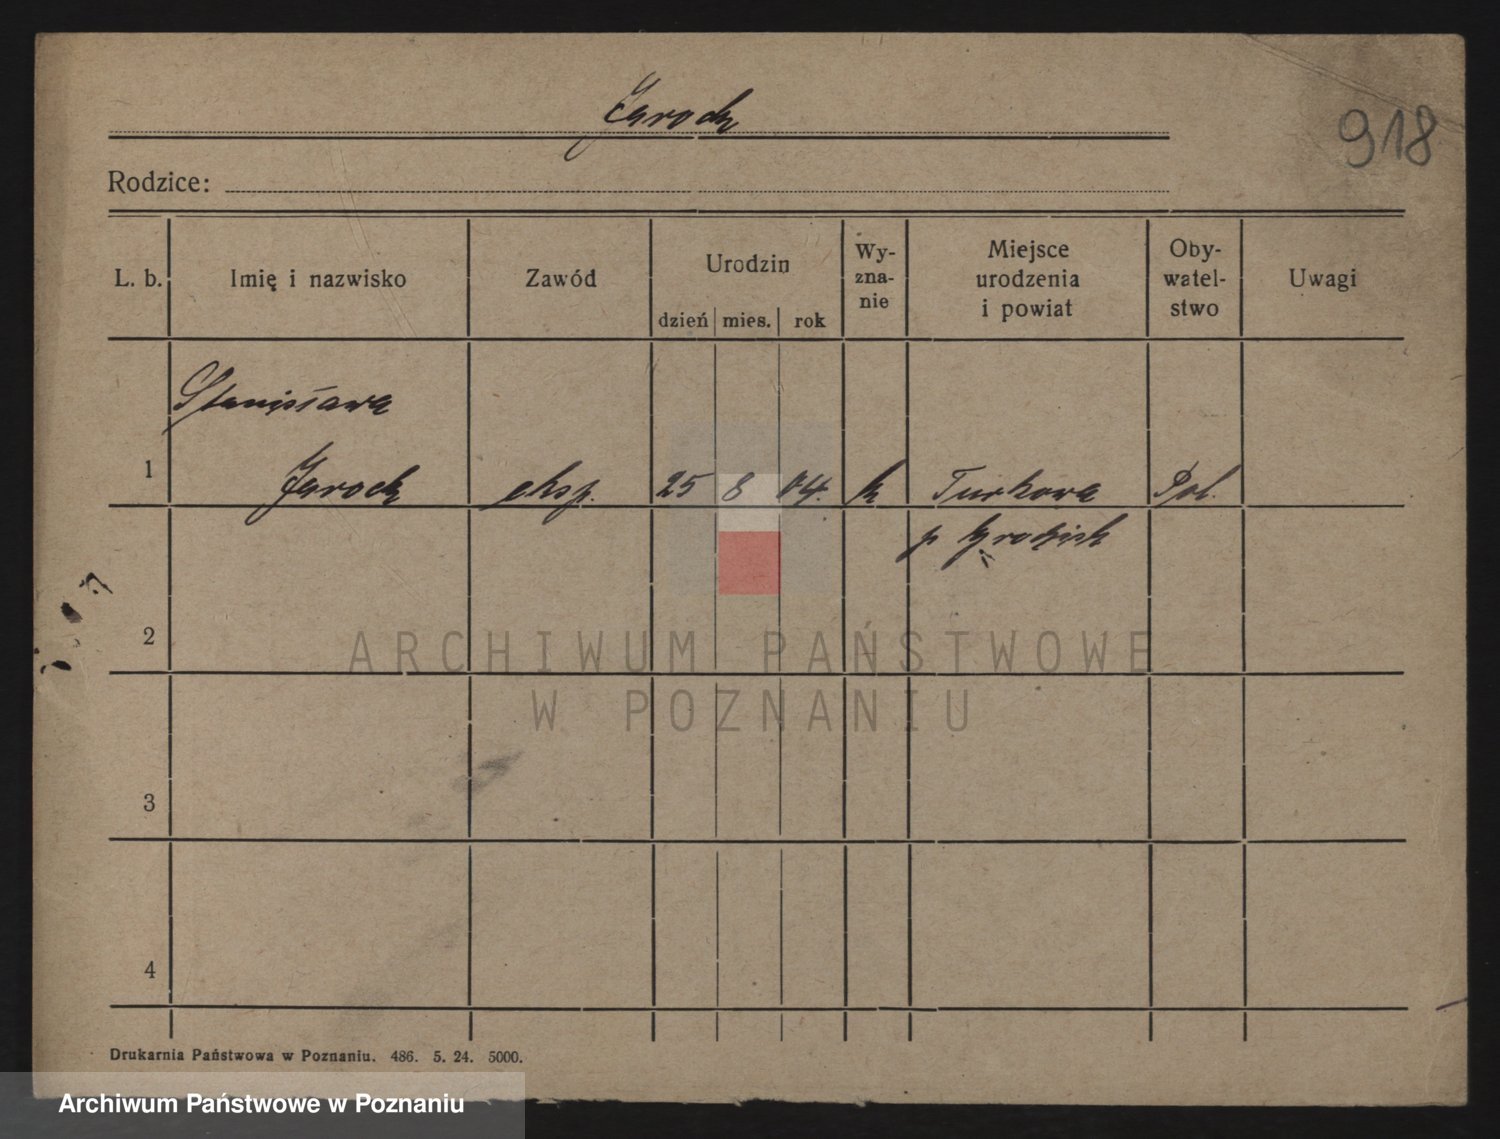 Jaroch
918
Rodzice:
L. b. Imię i nazwisko Zawód Urodzin dzień mies. rok Wy-zna-nie Miejsce urodzenia i powiat Oby-watel-stwo Uwagi
Stanisława
1 Jaroch eksp. 25 8 04. k Turkowa Pol.
p Grodzisk
2
ARCHIWUM PAŃSTWOWE
W POZNANIU
3
4
Drukarnia Państwowa w Poznaniu. 486. 5. 24. 5000.
Archiwum Państwowe w Poznaniu